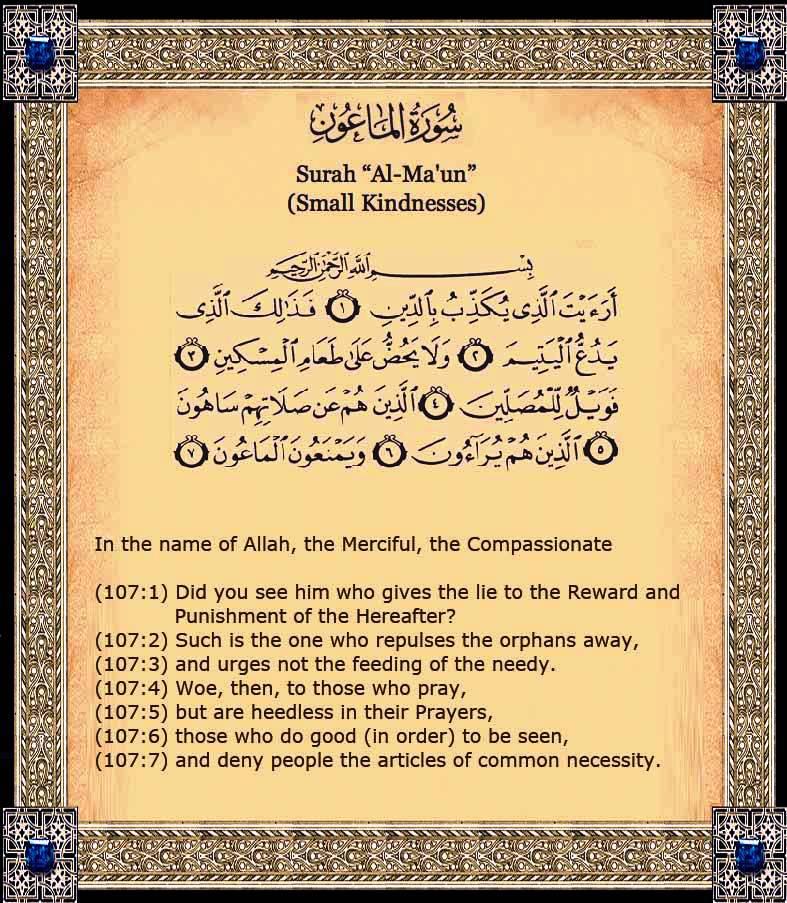 سُورَةُ المَاعُونِ
Surah “Al-Ma'un”
(Small Kindnesses)
بِسْمِ اللَّهِ الرَّحْمَٰنِ الرَّحِيمِ
أَرَءَيْتَ الَّذِى يُكَذِّبُ بِالدِّينِ ١ فَذَٰلِكَ الَّذِى
يَدُعُّ الْيَتِيمَ ٢ وَلَا يَحُضُّ عَلَىٰ طَعَامِ الْمِسْكِينِ ٣
فَوَيْلٌ لِّلْمُصَلِّينَ ٤ الَّذِينَ هُمْ عَن صَلَاتِهِمْ سَاهُونَ
٥ الَّذِينَ هُمْ يُرَاءُونَ ٦ وَيَمْنَعُونَ الْمَاعُونَ ٧
In the name of Allah, the Merciful, the Compassionate
(107:1) Did you see him who gives the lie to the Reward and
Punishment of the Hereafter?
(107:2) Such is the one who repulses the orphans away,
(107:3) and urges not the feeding of the needy.
(107:4) Woe, then, to those who pray,
(107:5) but are heedless in their Prayers,
(107:6) those who do good (in order) to be seen,
(107:7) and deny people the articles of common necessity.